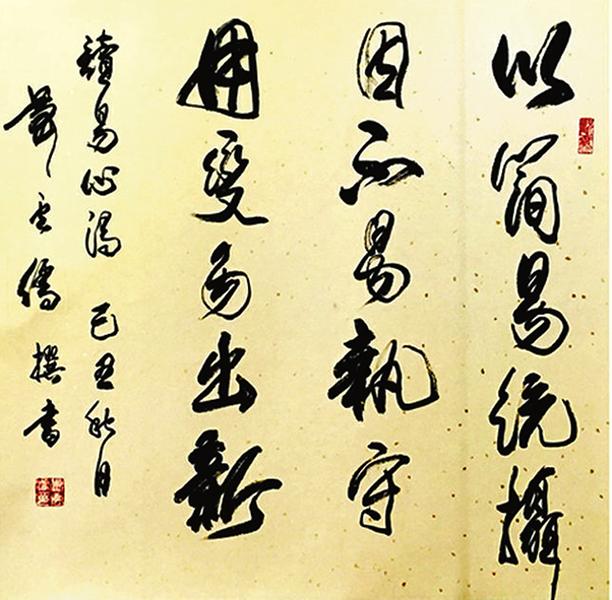 以簡易統攝
因不易執守
用變易出新
讀易心得 己丑秋月
云儒撰書